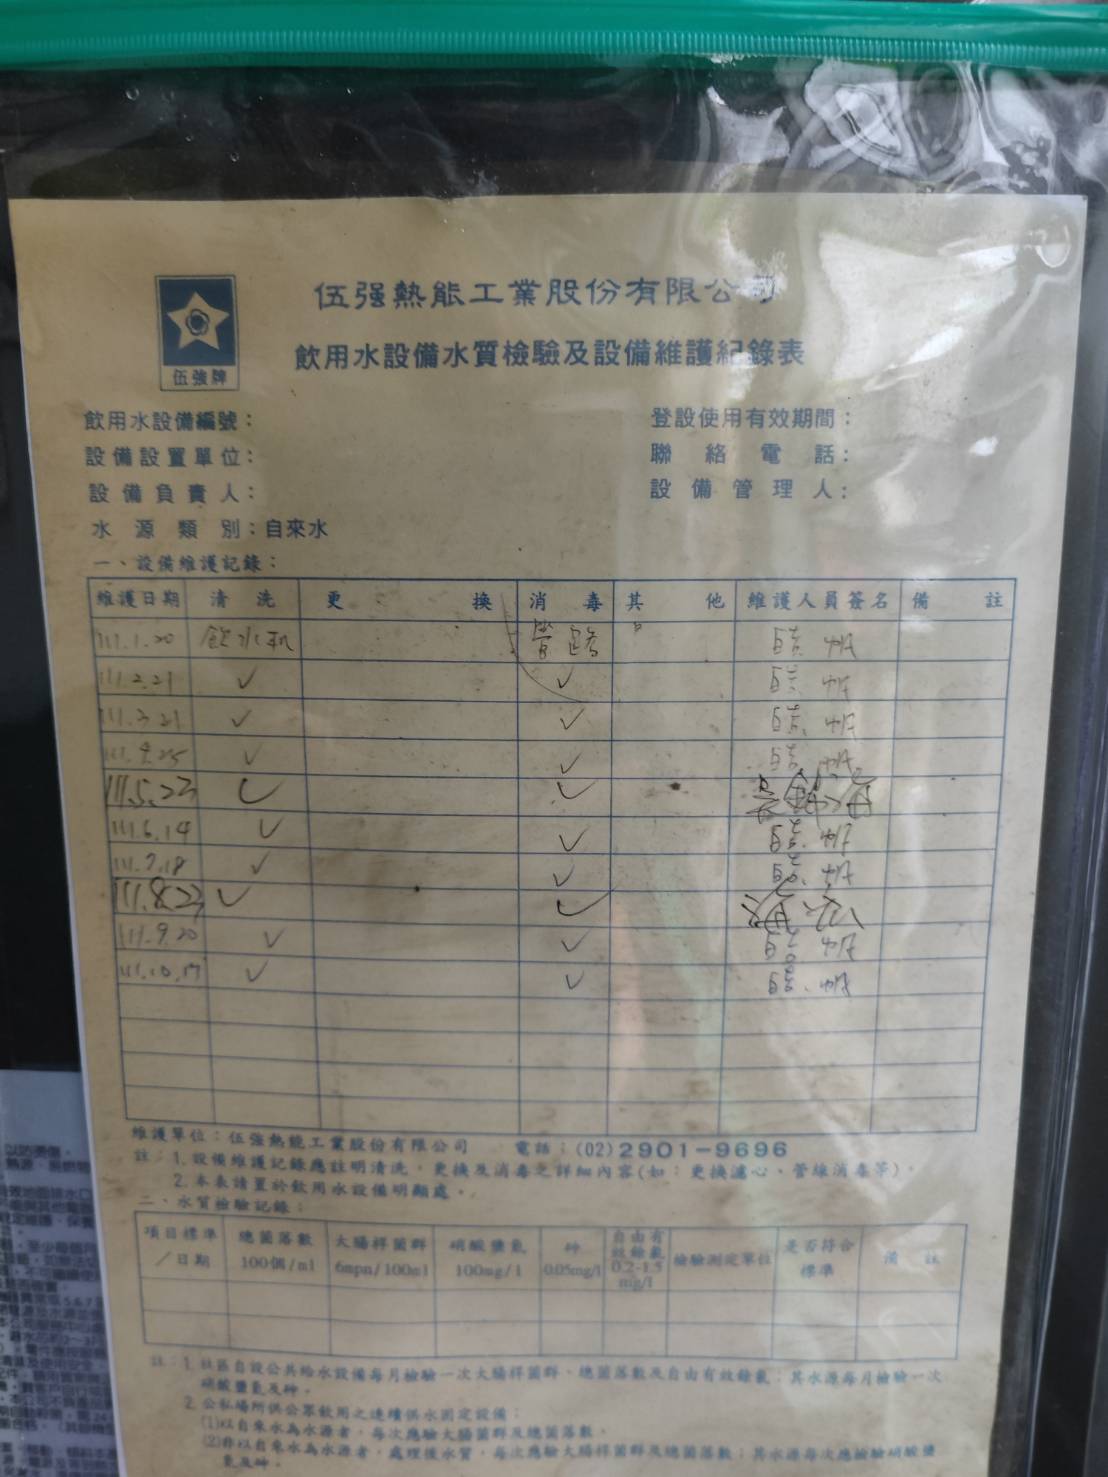 伍强熱能工業股份有限公司
伍強牌
飲用水設備水質檢驗及設備維護紀錄表
飲用水設備編號：
登設使用有效期間：
設備設置單位：
聯絡電話：
設備負責人：
設備管理人：
水源類別：自來水
一、設備維護記錄：
維護日期 清洗 更換 消毒 其他 維護人員簽名 備註
111.1.20 飲水机 管路
111.2.21 ✓ ✓
111.3.21 ✓ ✓
111.4.25 ✓ ✓
111.5.23 ✓ ✓
111.6.14 ✓ ✓
111.7.18 ✓ ✓
111.8.23 ✓ ✓
111.9.20 ✓ ✓
111.10.17 ✓ ✓
維護單位：伍強熱能工業股份有限公司 電話：(02)2901-9696
註：1.設備維護記錄應註明清洗，更換及消毒之詳細內容(如：更換濾心、管線消毒等)。
2.本表請置於飲用水設備明顯處。
二、水質檢驗記錄：
項目標準／日期 總菌落數100個/ml 大腸桿菌群6mpn/100ml 硝酸鹽氮100mg/l 砷0.05mg/l 自由有效餘氯0.2-1.5mg/l 檢驗測定單位 是否符合標準 備註
註：1.社區自設公共給水設備每月檢驗一次大腸桿菌群、總菌落數及自由有效餘氯；其水源每月檢驗一次
硝酸鹽氮及砷。
2.公私場所供公眾飲用之連續供水固定設備：
(1)以自來水為水源者，每次應驗大腸菌群及總菌落數。
(2)非以自來水為水源者，處理後水質，每次應驗大腸桿菌群及總菌落數；其水源每次應檢驗硝酸鹽
氮及砷。